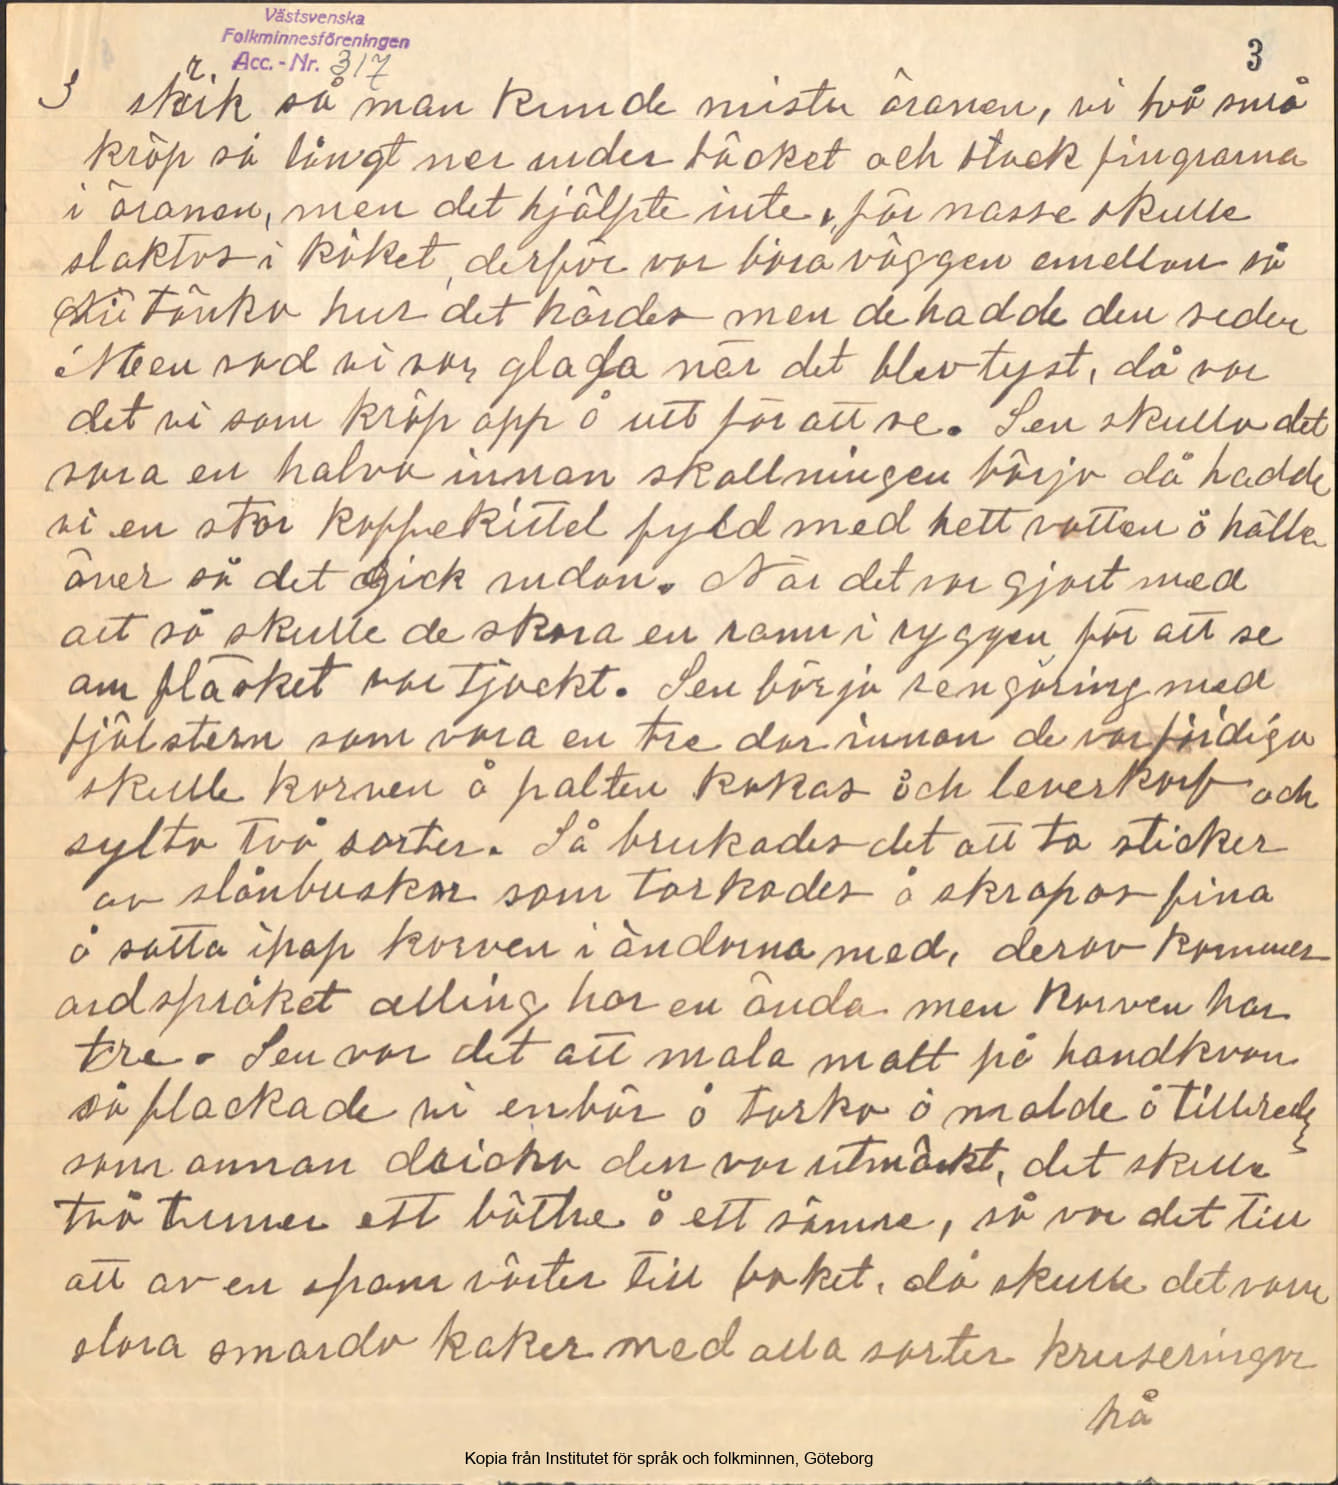 Västsvenska
Folkminnesföreningen
Acc. - Nr. 317
3
3 skrik så man kunde mista öronen, vi två små
kröp så långt ner under täcket och stack fingrarna
i öronen, men det hjälpte inte, för nasse skulle
slaktas i köket, derför var bara väggen emellan så
Ni tänka hur det hördes men de hadde den seden
Men vad vi var glada när det blev tyst, då var
det vi som kröp opp å utt för att se. Sen skulle det
vara en halva innan skallningen börja då hadde
vi en stor koppekittel fyld med hett vatten å hälla
över så det gick undan. När det var gjort med
att så skulle de skära en ramm i ryggen för att se
om fläsket var tjockt. Sen börja rengöring med
fjälstern som vara en tre dar innan de var färdiga
skulle korven å palten kokas och leverkorf och
sylta två sorter. Så brukades det att ta sticker
av slånbuskar som torkades å skrapas fina
å satta ihop korven i ändorna med, derav kommer
ordspråket alling har en ända men korven har
tre. Sen var det att mala malt på handkvarn
så plackade vi enbär å torka å malde å tillrede
som annan dricka den var utmärkt, det skulle
två tunner ett bättre å ett sämre, så var det till
att av en spann vörter till baket, då skulle det vara
stora smorda kaker med alla sorter kruseringar
på
Kopia från Institutet för språk och folkminnen, Göteborg